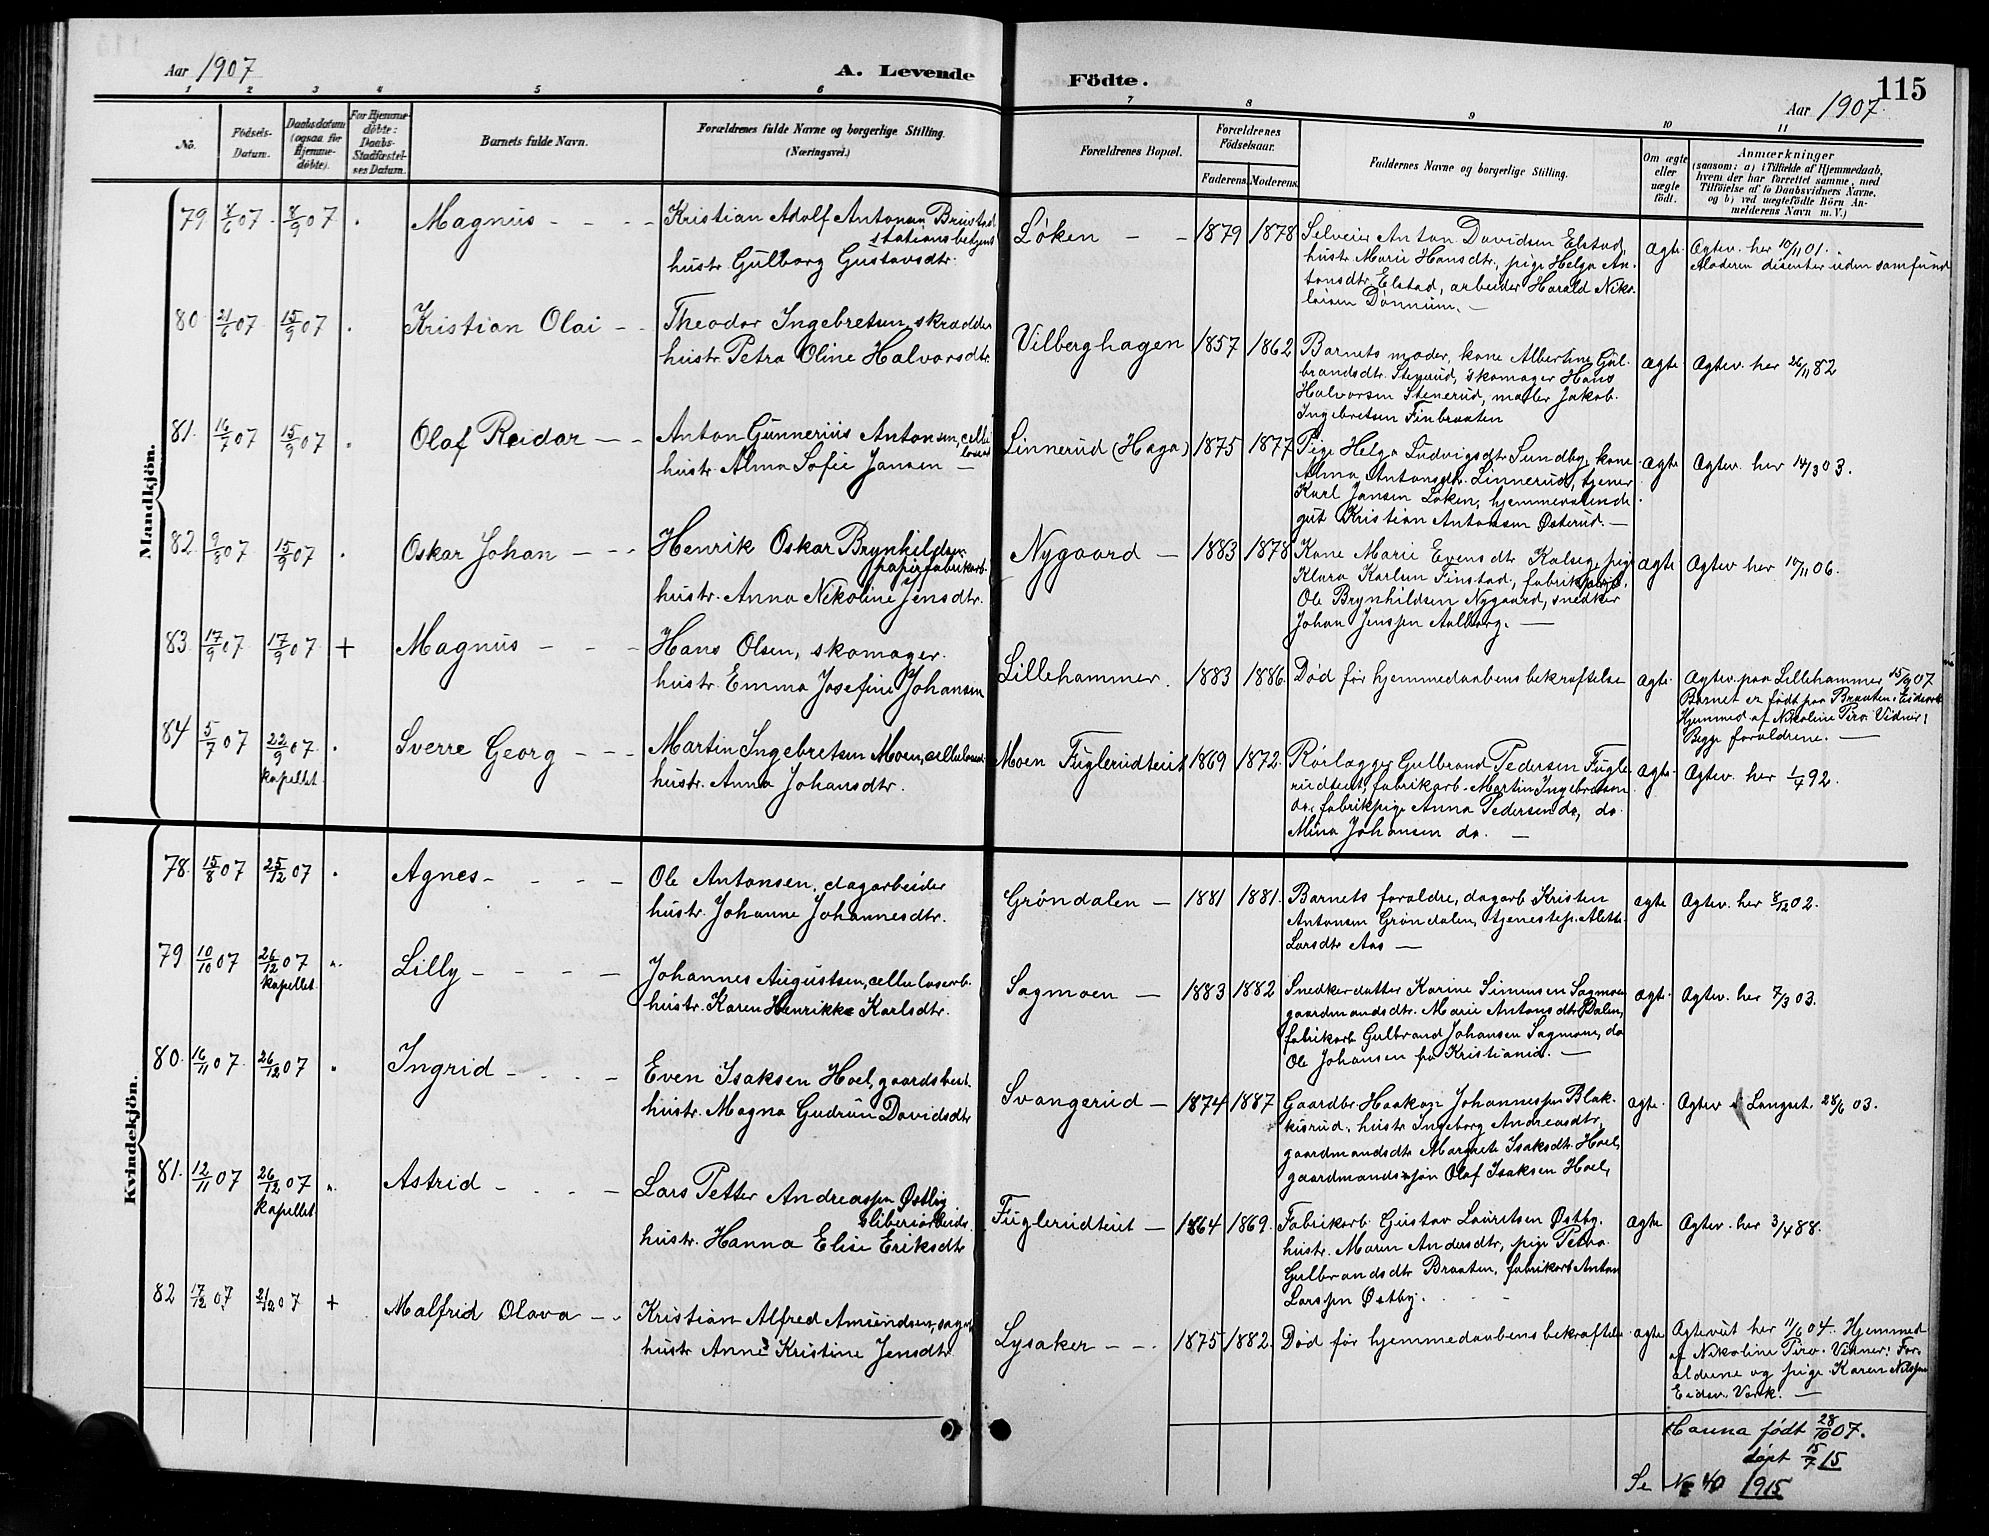 Aar 1907
A. Levende Födte.
115
Aar 1907
1 2 3 4 5 6 7 8 9 10 11
No.
Födsels-Datum.
Daabsdatum (ogsaa for Hjemmedöbte).
For Hjemmedöbte: Daabs-Stadfæstelses Datum.
Barnets fulde Navn.
Forældrenes fulde Navne og borgerlige Stilling. (Næringsvei.)
Forældrenes Bopæl.
Forældrenes Födselsaar.
Faderens. Moderens.
Faddernes Navne og borgerlige Stilling.
Om ægte eller uægte födt.
Anmærkninger
(saasom: a) i Tilfælde af Hjemmedaab, hvem der har forrettet samme, med Tilföielse af to Daabsvidners Navne, og b) ved uægtefödte Börn Anmelderens Navn m. V.)
Mandkjön.
79 4/6 07 8/9 07 Magnus
Kristian Adolf Antonsen
stationsbetjent
hustr. Gulborg Gustavsdtr.
Løken 1879 1878
Anton Davidsen Elstad,
hustr. Marie Hansdtr., pige Helga An-
tonsdtr. Elstad, arbeider Harald Niko-
laisen Dønnum.
Ægte
Ægtev. her 10/11 01.
Moderen disenter uden samfund
80 21/6 07 15/9 07 Kristian Olai
Theodor Ingebretsen, skrædder
hustr. Petra Oline Halvorsdtr.
Vilberghagen 1857 1862
Barnets moder, kone Albertine Gul-
brandsdtr. Stenerud, skomager Hans
Halvorsen Stenerud, maler Jakob
Ingebretsen Finbraaten
Ægte
Ægtev. her 26/11 82
81. 16/7 07 15/9 07 Olaf Reidar
Anton Gunnerius Antonsen,
hustr. Alma Sofie Jansen
Linnerud (Haga) 1875 1877
Pige Helga Ludvigsdtr. Sundby, kone
Alma Antonsdtr. Linnerud, tjener
Karl Jansen Løken, hjemmeværende
gut Kristian Antonsen Østerud.
Ægte
Ægtev. her 14/3 03.
82. 9/8 07 15/9 07 Oskar Johan
Henrik Oskar Brynhildsen
papirfabrikarb.
hustr. Anna Nikoline Jensdtr.
Nygaard 1883 1878
Kone Marie Evensdtr. pige
Klara Karlsen Finstad, fabrikarb.
Ole Brynhildsen Nygaard, snedker
Johan Jenssen Aalborg.
Ægte
Ægtev. her 10/11 06.
83 17/9 07 17/9 07 + Magnus
Hans Olsen, skomager.
hustr. Emma Josefine Johansen
Lillehammer. 1883 1886
Død før hjemmedaabens bekræftelse
Ægte
Ægtev. paa Lillehammer 15/9 07
Barnet er født paa Braaten, Eidsvold
Hjemmed. af Nikoline Tiro. Vidner:
Begge forældrene.
84 5/7 07 22/9 07 kapellet Sverre Georg
Martin Ingebretsen Moen,
hustr. Anna Johansdtr.
Moen Fuglerudteiet 1869 1872
Rørlægger Gulbrand Pedersen Fugle-
rudteiet, fabrikarb. Martin Ingebretsen
do., fabrikpige Anna Pedersen do, do
Mina Johansen do.
Ægte
Ægtev. her 1/4 92.
Kvindekjön.
78. 15/8 07 25/12 07 Agnes
Ole Antonsen, dagarbeider
hustr. Johanne Johannesdtr.
Grøndalen 1881 1881.
Barnets forældre, dagarb. Kristen
Antonsen Grøndalen, tjenestep. Alette
Larsdtr. Aas
Ægte
Ægtev. her 8/12 02.
79 10/10 07 26/12 07 kapellet Lilly
Johannes Augustsen, cellulosearb.
hustr. Karen Henrikke Karlsdtr.
Sagmoen 1883 1882
Snedkerdatter Karine Simensen Sagmoen
gaardmandsdtr. Marie Antonsdtr. Dalen,
fabrikarb. Gulbrand Johansen Sagmoen, do
Ole Johansen fra Kristiania.
Ægte
Ægtev. her 7/3 03.
80. 16/11 07 26/12 07 Ingrid
Even Isaksen Hoel, gaardsbest.
hustr. Magna Gudrun Davidsdtr
Svangerud 1874 1887
Gaardbr. Haakon Johannessen Blak-
kisrud, hustr. Ingeborg Andreasdtr,
gaardmandsdtr. Margrete Isaksdtr. Hoel,
gaardmandssøn Olaf Isaksen Hoel,
Ægte.
Ægtev. i Langset 28/6 03.
81. 12/11 07 26/12 07 kapellet Astrid
Lars Petter Andreassen Østby
sliberiarbeider
hustr. Hanna Elise Eriksdtr
Fuglerudteiet 1864 1869.
Fabrikarb. Gustav Lauritsen Østby.
hustr. Maren Andersdtr, pige Petra
Gulbrandsdtr Braaten, fabrikarb. Anton
Larssen Østby.
Ægte
Ægtev. her 3/4 88.
82 17/12 07 21/12 07 + Malfrid Olava
Kristian Alfred Amundsen,
hustr Anne Kristine Jensdtr
Lysaker 1875 1882.
Død før hjemmedaabens bekræftelse
Ægte
Ægteviet her 11/6 04. Hjemmed.
af Nikoline Tiro. Vidner: For-
ældrene og pige Karen Nilssen
Eidsv. Værk.
Hanna født 28/10 07.
døpt 15/7 15
Se No 40 1915